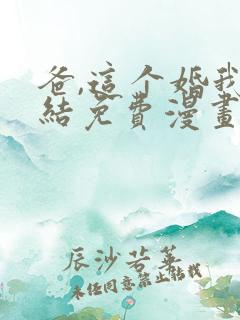 爸,這个婚我
結免費漫畫
辰沙若華
未经同意禁止轉載